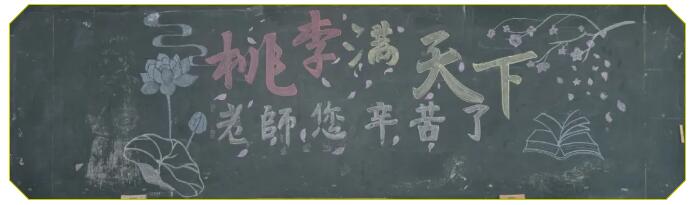 桃李满天下
老師您辛苦了